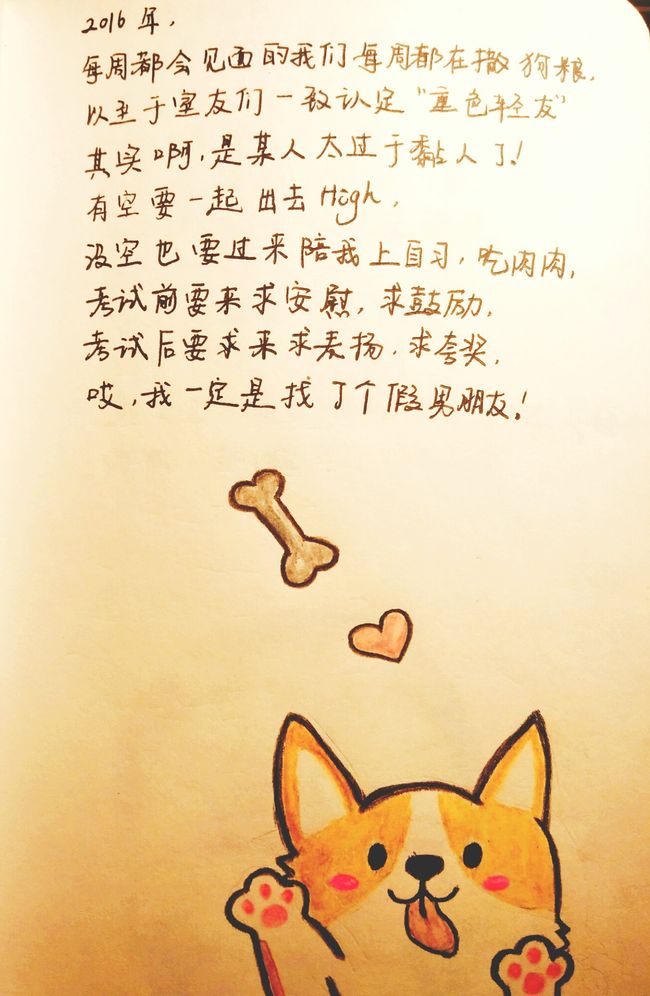 2016年,
每周都会见面的我们每周都在撒狗粮,
以至于室友们一致认定“重色轻友”
其实啊,是某人太过于黏人了!
有空要一起出去High,
没空也要过来陪我上自习,吃肉肉,
考试前要来求安慰,求鼓励,
考试后要求来求表扬,求夸奖,
哎,我一定是找了个假男朋友!